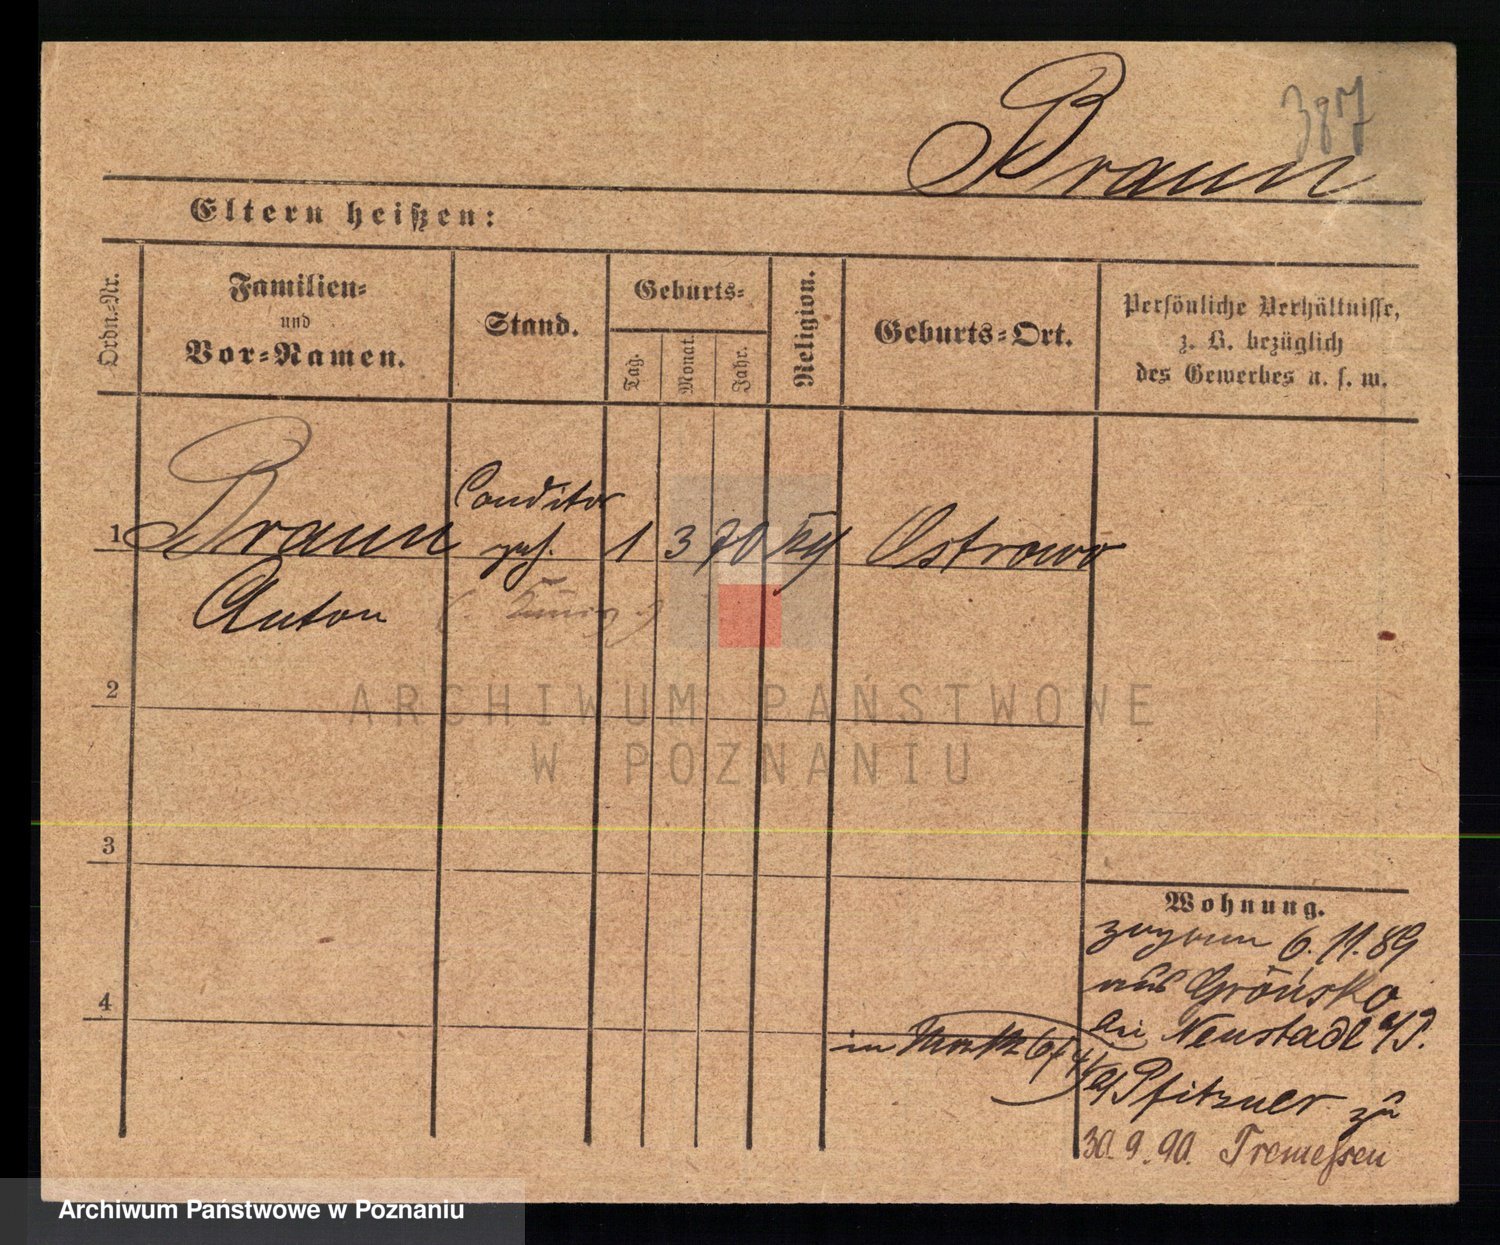 387
Braun
Eltern heißen:
Ordn.-Nr.
Familien-
und
Vor-Namen.
Stand.
Geburts-
Tag.
Monat.
Jahr.
Religion.
Geburts-Ort.
Persönliche Verhältnisse,
z. B. bezüglich
des Gewerbes u. s. w.
Conditor
1 Braun geh. 1 3 70 Ostrowo
Anton
2
ARCHIWUM PAŃSTWOWE
W POZNANIU
3
Wohnung.
6.11.89
aus Grońsko
4
bei Neustadt a/P.
in Markt
Pfitzner zu
30.9.90. Tremessen
Archiwum Państwowe w Poznaniu